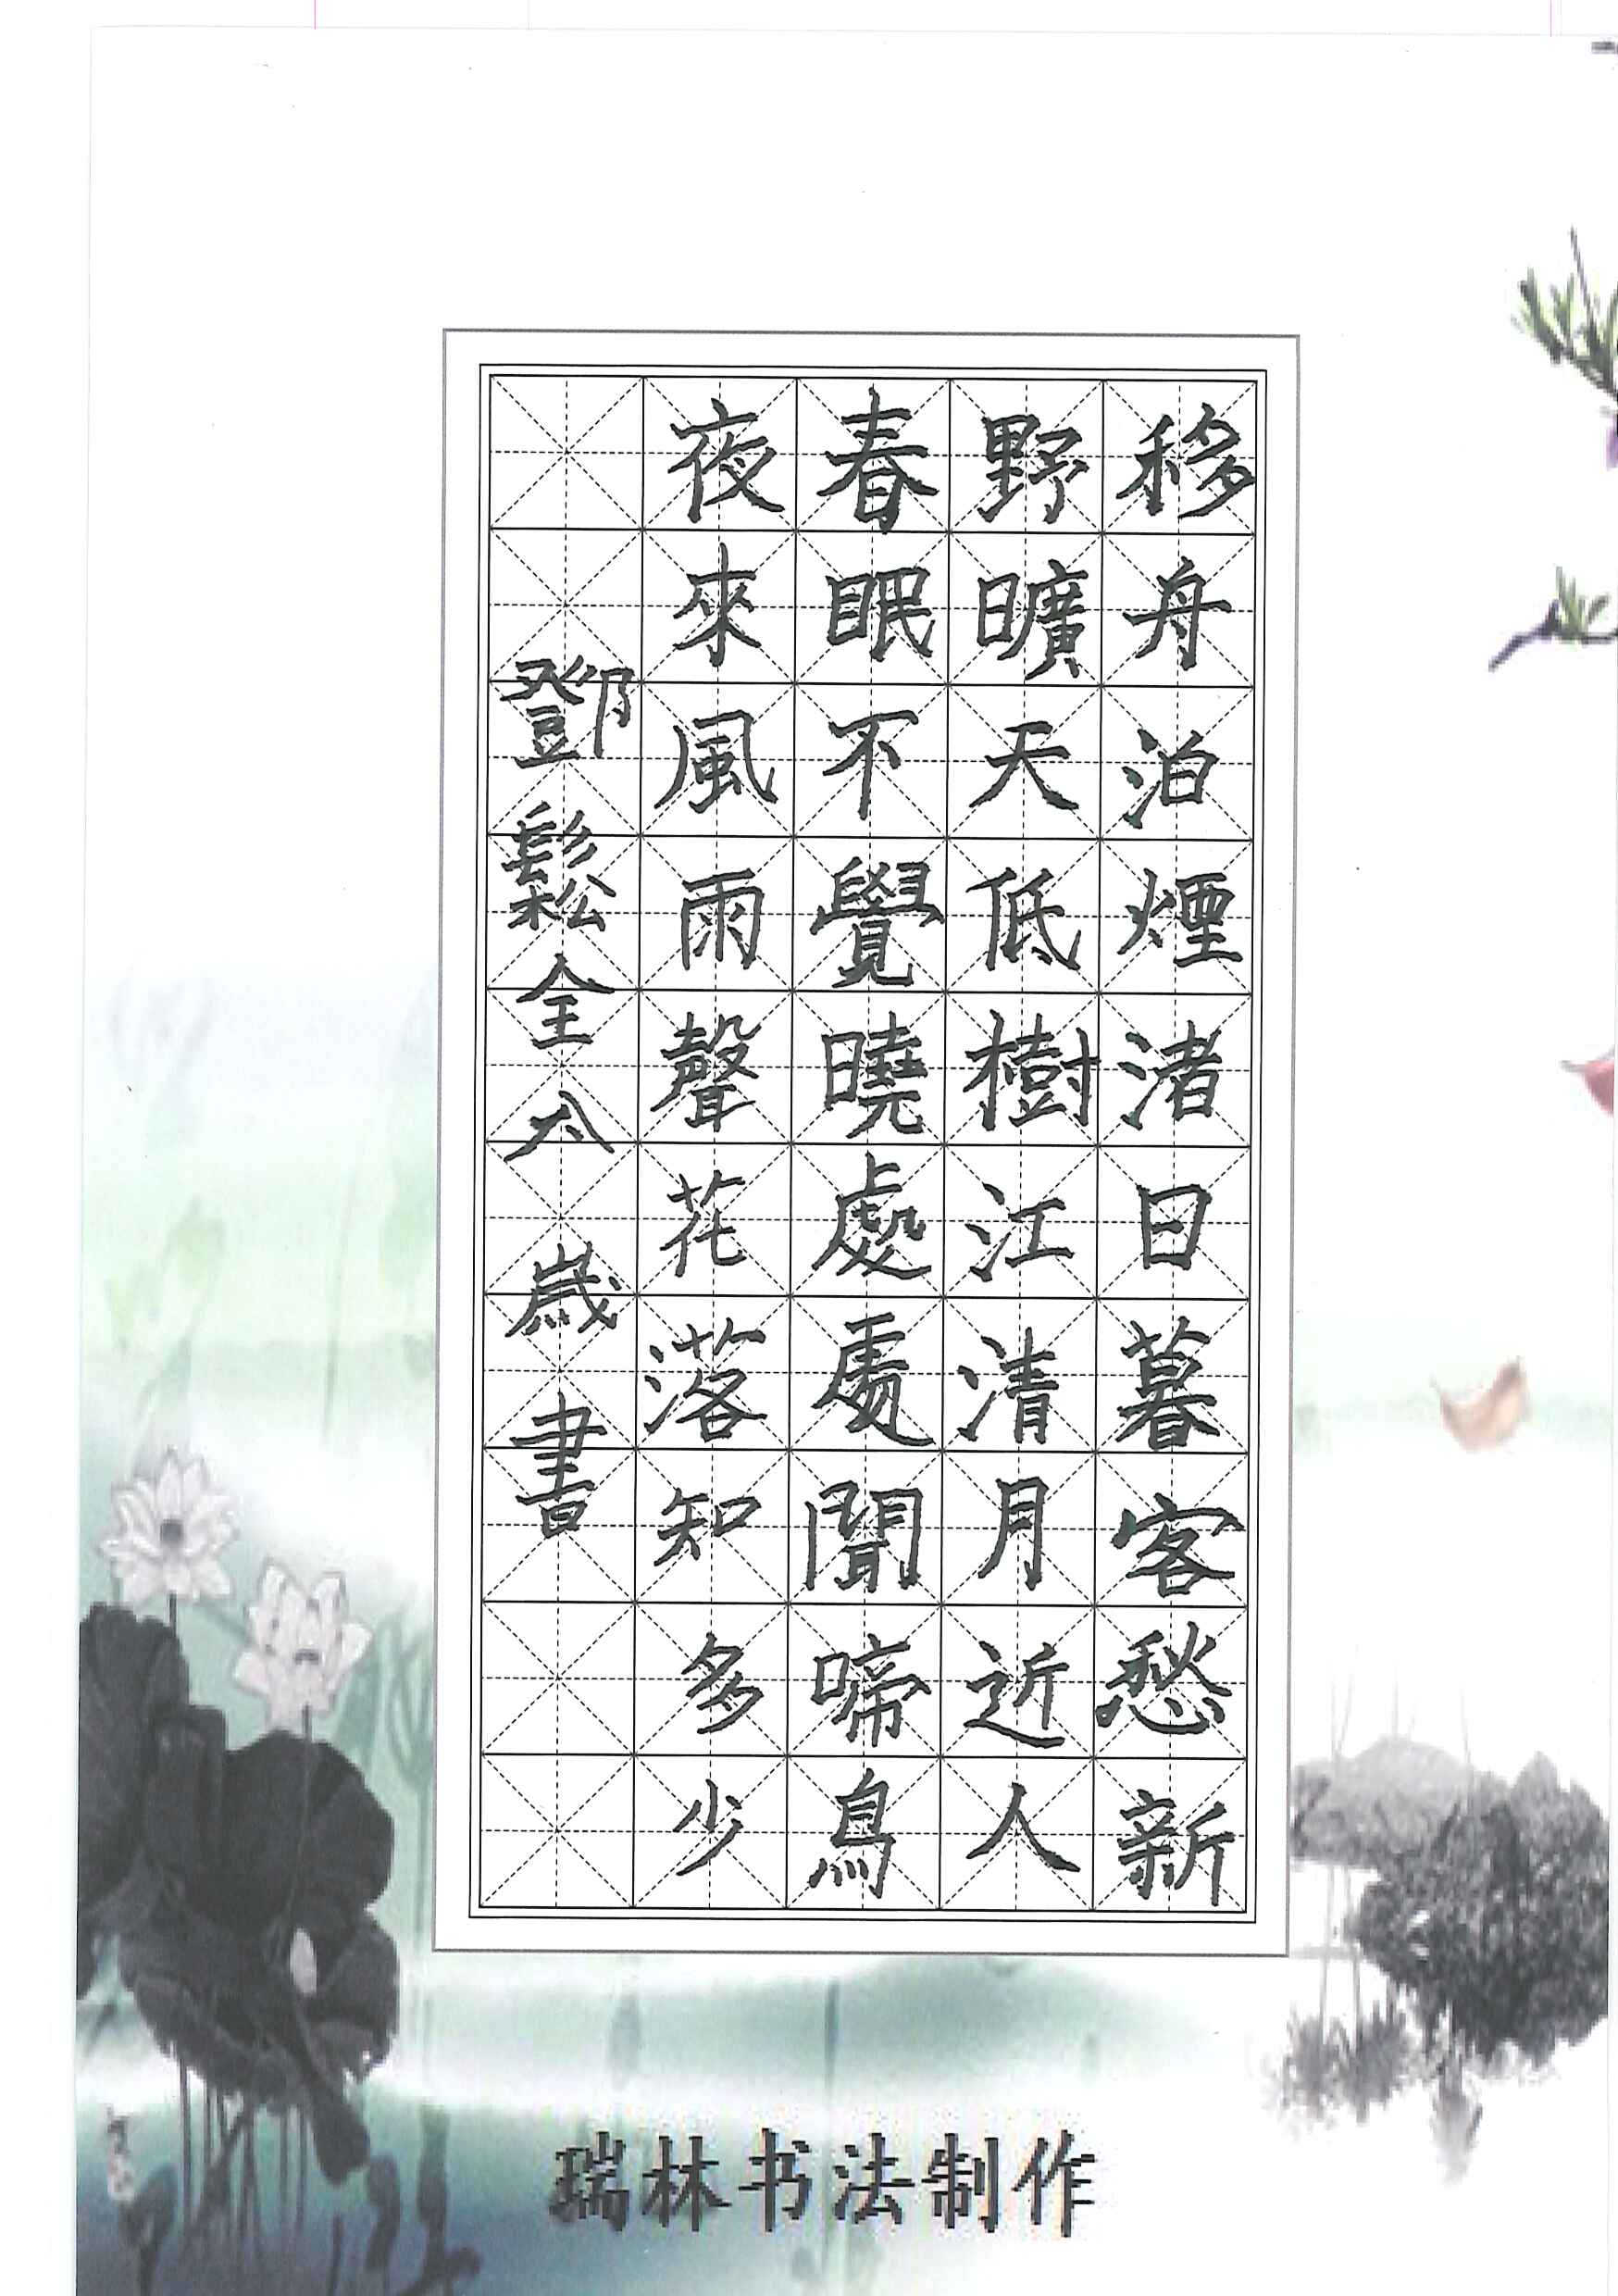 移舟泊煙渚日暮客愁新
野曠天低樹江清月近人
春眠不覺曉處處聞啼鳥
夜來風雨聲花落知多少
鄧鬆全六歲書
瑞林书法制作